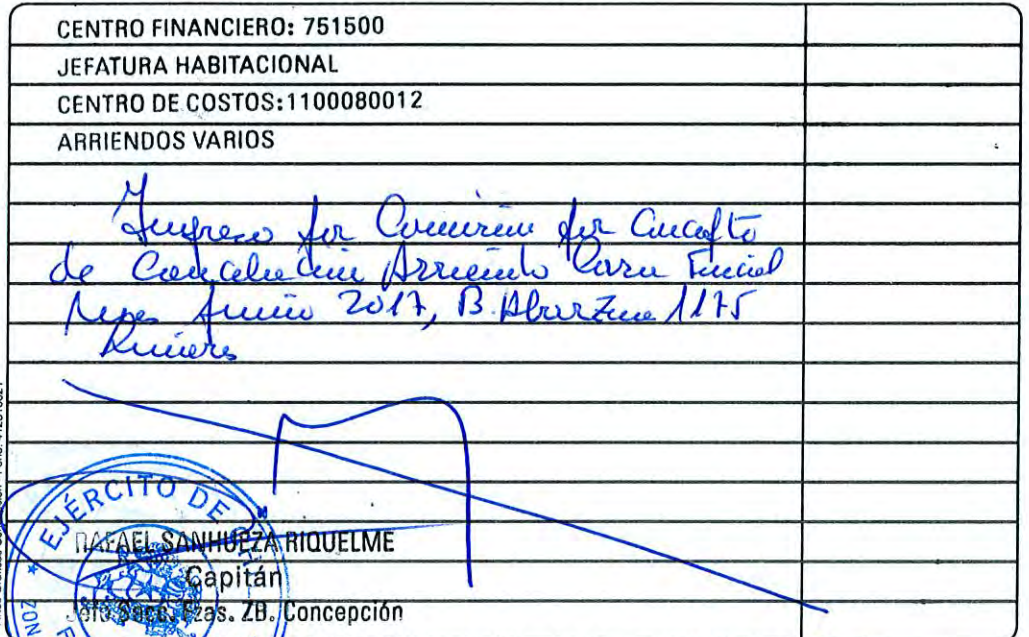 CENTRO FINANCIERO: 751500
JEFATURA HABITACIONAL
CENTRO DE COSTOS:1100080012
ARRIENDOS VARIOS
Ingreso por Comisión por Concepto
de Arriendo Casa Fiscal
Mes Junio 2017, B. Abarzua 1175
EJÉRCITO DE
RAFAEL SANHUEZA RIQUELME
Capitán
Jefe Secc. Fzas. ZB. Concepción